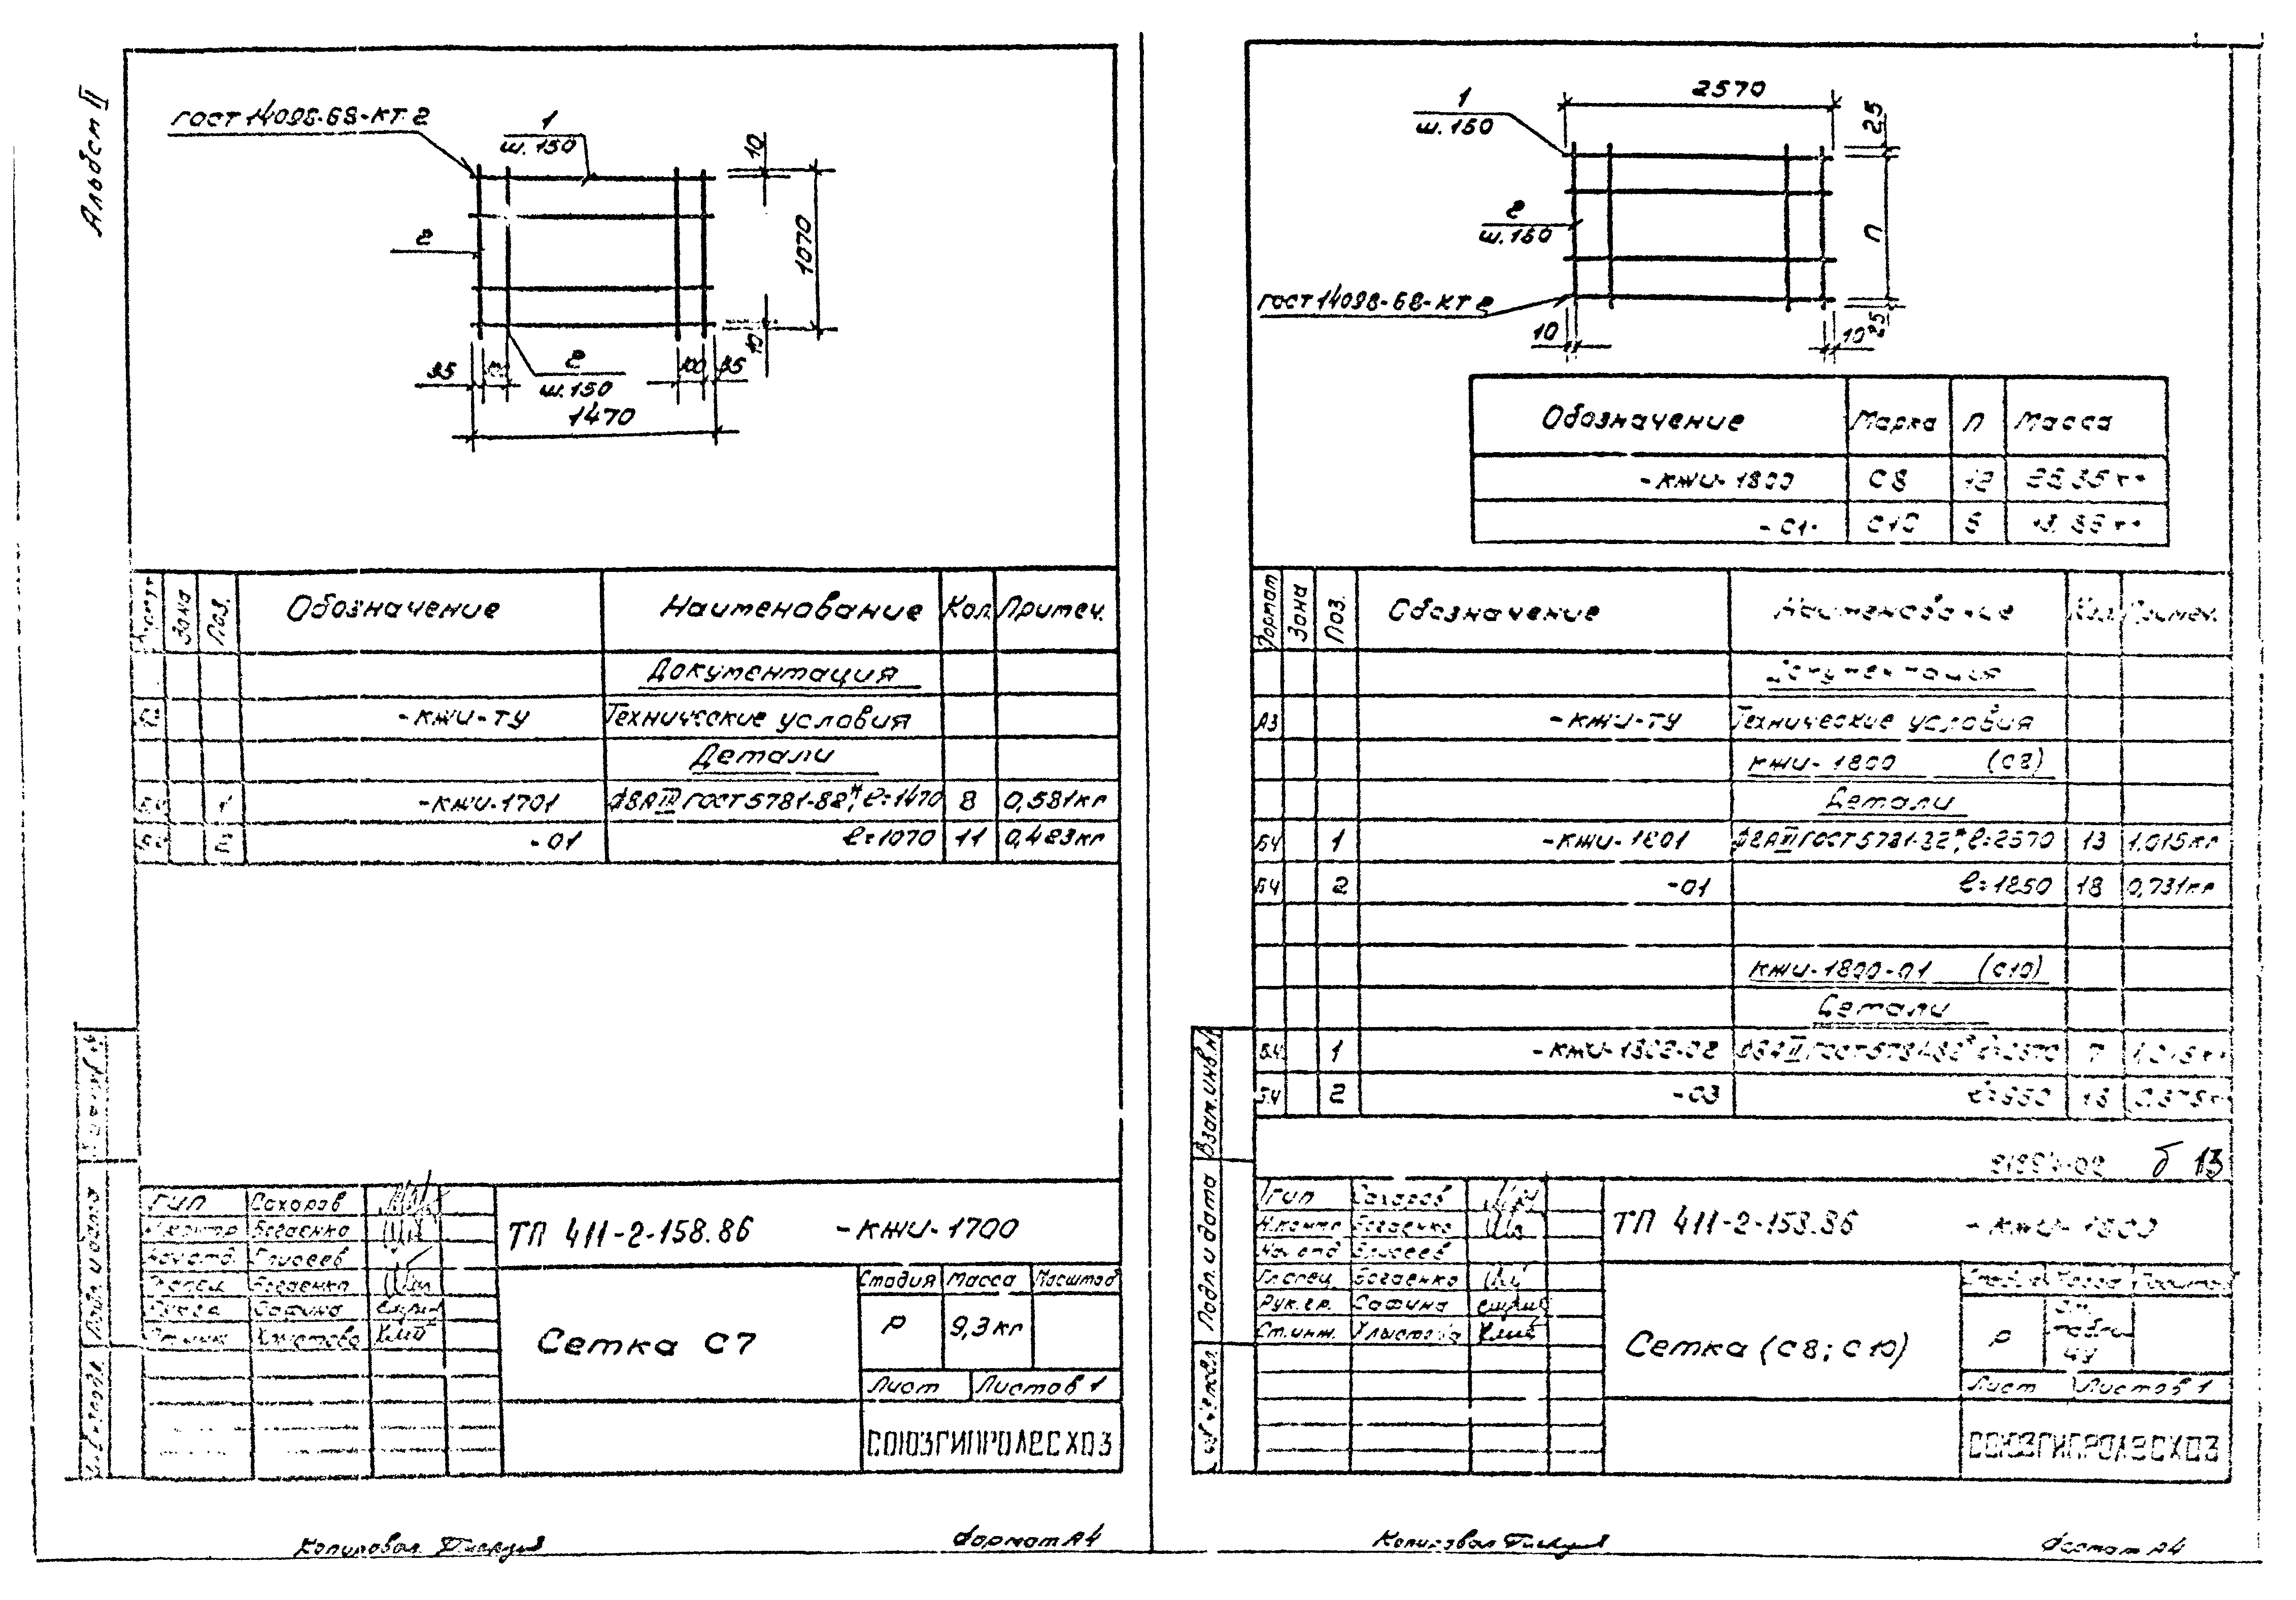 Альбом II
ГОСТ 14098-68-КТ 2
1
ш. 150
10
2
1070
10
35
100
2
ш. 150
100
35
1470
Зона
Поз.
Обозначение
Наименование
Кол.
Примеч.
Документация
-КЖИ-ТУ
Технические условия
Детали
1
-КЖИ-1701
ф8АIII ГОСТ 5781-82*, ℓ=1470
8
0,581кг
-01
ℓ=1070
11
0,423кг
ГИП
Сахаров
Н.контр
Богаенко
Нач.отд.
Елисеев
Гл.спец.
Богаенко
Рук.гр.
Сафина
Ст.инж.
Хлыстова
ТП 411-2-158.86
-КЖИ-1700
Сетка С7
Стадия
Масса
Масштаб
Р
9,3кг
Лист
Листов 1
СОЮЗГИПРОЛЕСХОЗ
Подп. и дата
Копировал
Формат А4
1
ш. 150
2570
25
2
ш. 150
п
ГОСТ 14098-68-КТ 2
10
10
25
Обозначение
Марка
п
Масса
-КЖИ-1800
С8
12
26.35 кг
С10
6
Формат
Зона
Поз.
Обозначение
Наименование
Кол.
Примеч.
Документация
А3
-КЖИ-ТУ
Технические условия
КЖИ-1800 (С8)
Детали
БЧ
1
-КЖИ-1801
ф8АIII ГОСТ 5781-82*, ℓ=2570
13
1,015кг
БЧ
2
-01
ℓ=1850
18
0,731кг
КЖИ-1800-01 (С10)
Детали
БЧ
1
ф8АIII ГОСТ 5781-82* ℓ=2570
7
1,015кг
БЧ
2
-03
ℓ=950
18
б 13
ГИП
Сахаров
Н.контр
Богаенко
Нач.отд
Елисеев
Гл.спец.
Богаенко
Рук.гр.
Сафина
Ст.инж.
Хлыстова
ТП 411-2-158.86
-КЖИ-1800
Сетка (С8; С10)
Стадия
Масса
Масштаб
Р
см.
табли
цу
Лист
Листов 1
СОЮЗГИПРОЛЕСХОЗ
Взам.инв.№
Подп. и дата
Копировал
Формат А4